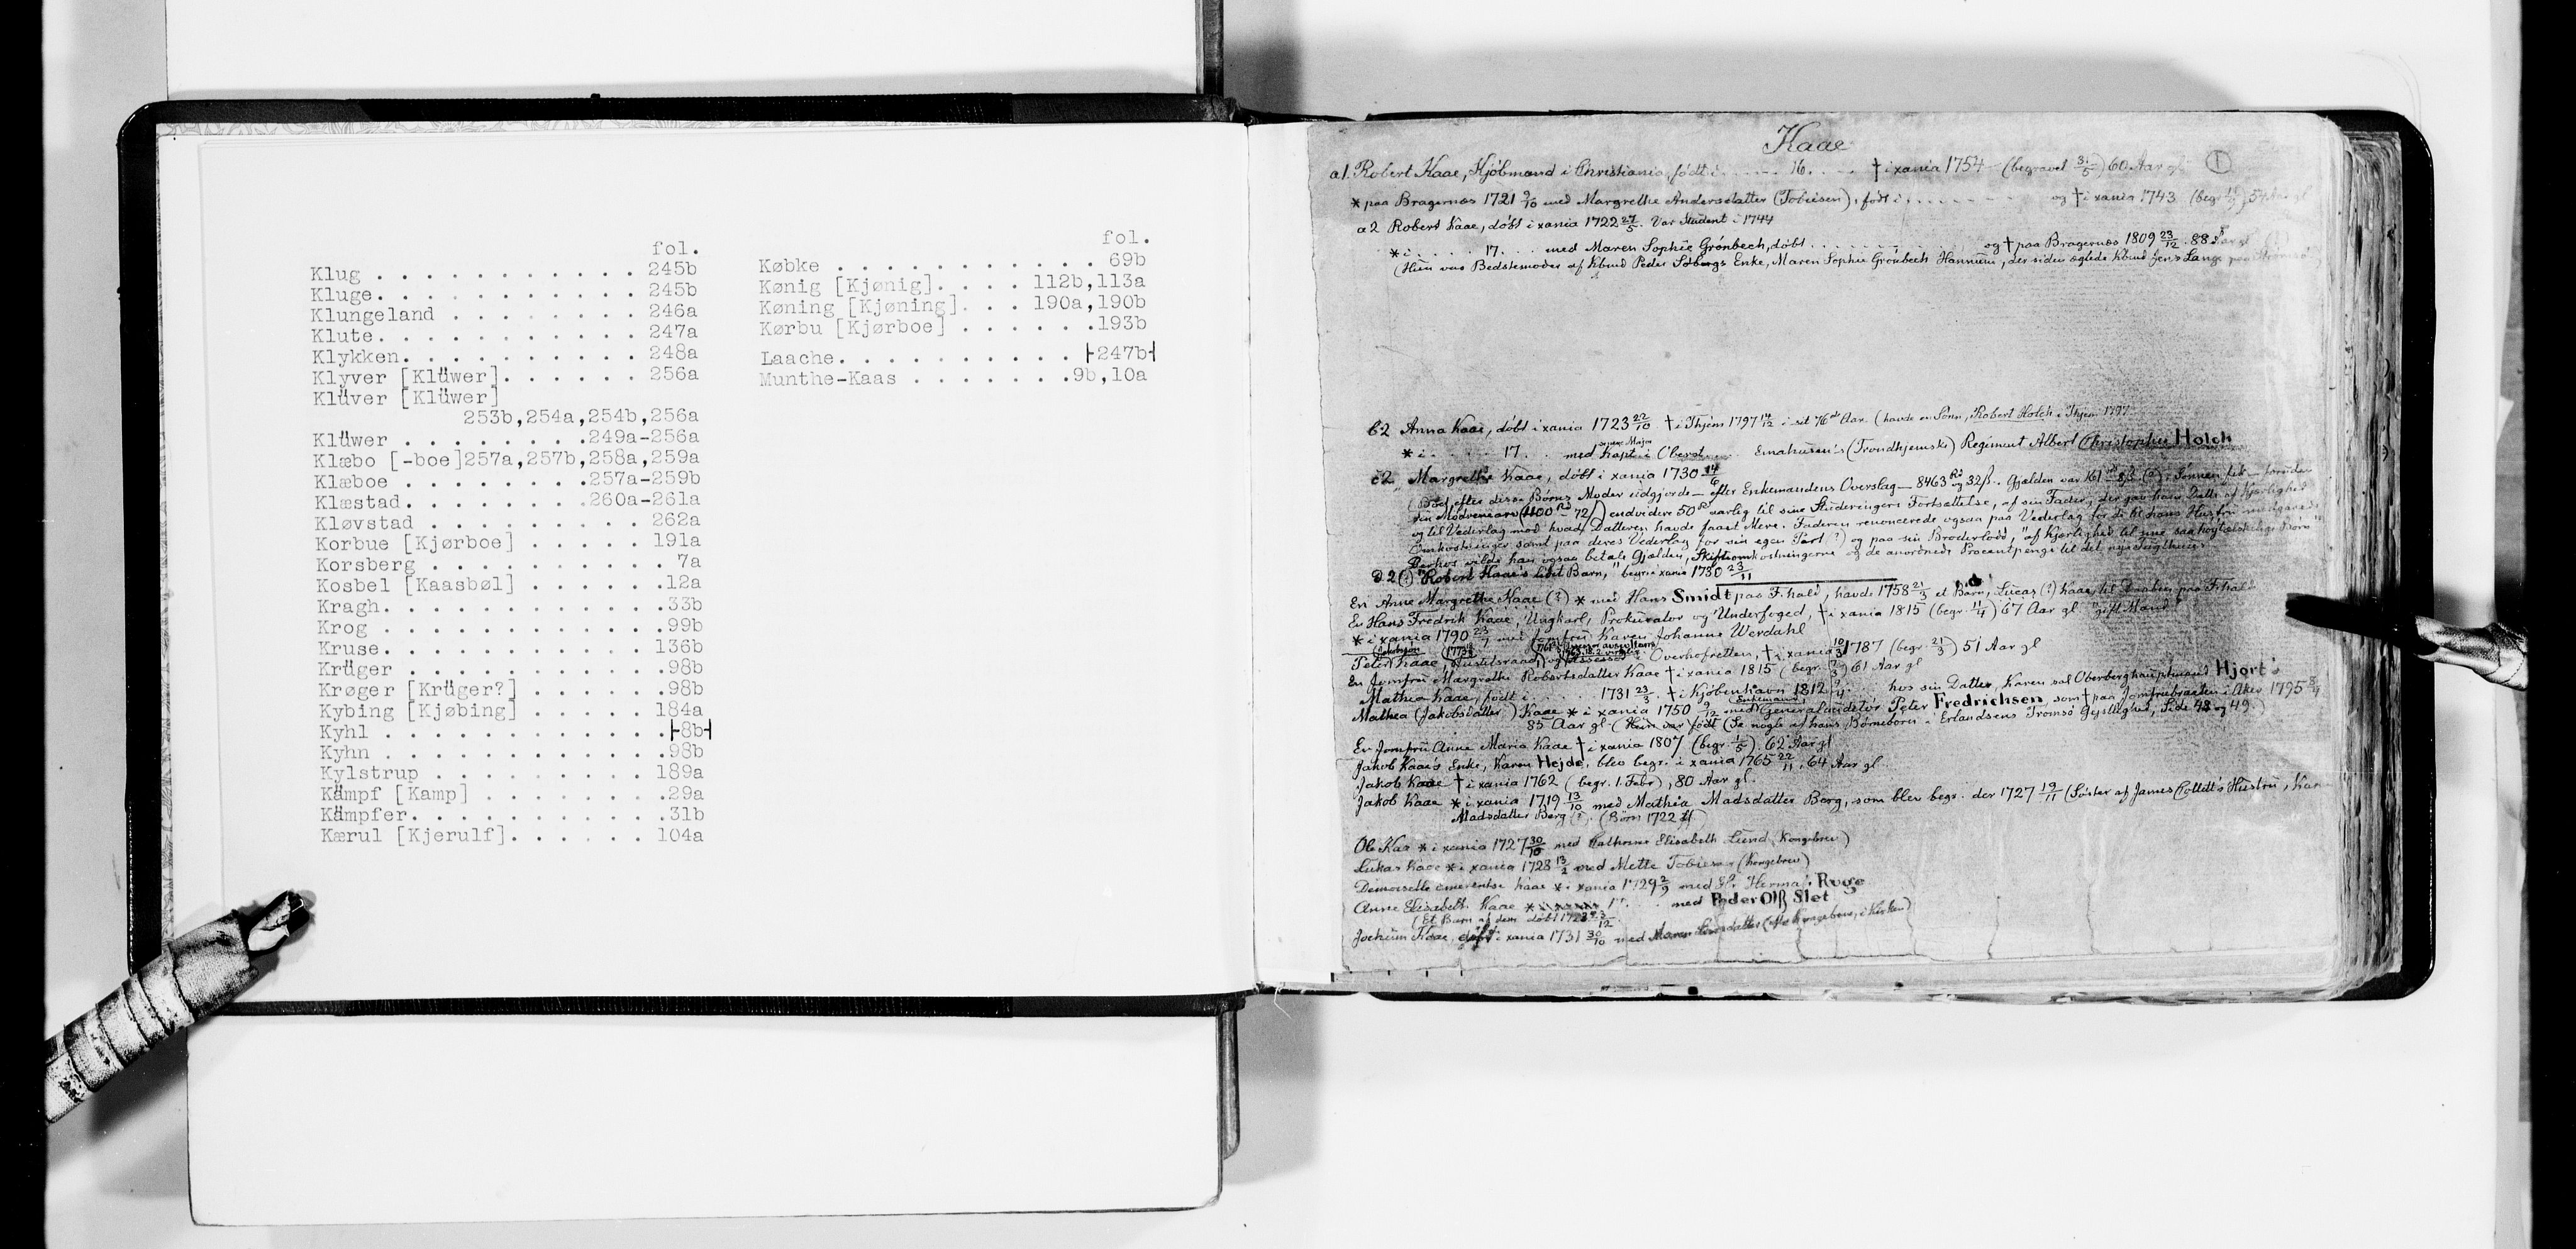 fol.
Klug . . . . . . . . . . . . 245b
Kluge. . . . . . . . . . . . 245b
Klungeland . . . . . . . . . 246a
Klute. . . . . . . . . . . . 247a
Klykken. . . . . . . . . . . 248a
Klyver [Klüwer]. . . . . . . 256a
Klüver [Klüwer]
253b,254a,254b,256a
Klüwer . . . . . . . . .249a-256a
Klæbo [-boe]257a,257b,258a,259a
Klæboe . . . . . . . . .257a-259b
Klæstad. . . . . . . . .260a-261a
Kløvstad . . . . . . . . . . 262a
Korbue [Kjørboe] . . . . . . 191a
Korsberg . . . . . . . . . . 7a
Kosbel [Kaasbøl] . . . . . . .12a
Kragh. . . . . . . . . . . . .33b
Krog . . . . . . . . . . . . .99b
Kruse. . . . . . . . . . . . 136b
Krüger . . . . . . . . . . . .98b
Krøger [Krüger?] . . . . . . .98b
Kybing [Kjøbing] . . . . . . 184a
Kyhl . . . . . . . . . . . . .├8b┤
Kyhn . . . . . . . . . . . . .98b
Kylstrup . . . . . . . . . . 189a
Kämpf [Kamp] . . . . . . . . .29a
Kämpfer. . . . . . . . . . . .31b
Kærul [Kjerulf]. . . . . . . 104a
fol.
Købke . . . . . . . . . . . . 69b
Kønig [Kjønig]. . . . . 112b,113a
Køning [Kjøning]. . . . 190a,190b
Kørbu [Kjørboe] . . . . . . .193b
Laache. . . . . . . . . . . ├247b┤
Munthe-Kaas . . . . . . . .9b,10a
Kaae
1
a1. Robert Kaae, Kjöbmand i Christiania, född i . . . . 16. . . . † i xania 1754 (begravet 31/5) 60 Aar gl
* paa Bragernæs 1721 9/10 med Margrethe Andersdatter (Tobiesen), född i . . . . . . og † i xania 1743 (begr. 54 Aar gl
a2 Robert Kaae, döbt i xania 1722 27/5. Var Student i 1744
* i . . . . . 17. . . med Maren Sophie Grönbech, döbt . . . . . . og † paa Bragernæs 1809 23/12. 88 Aar gl
(Hun var Bedstemoder af Kbmd Peder Söbergs Enke, Maren Sophie Grönbech Hannum, der siden ægtede Kbmd Jens Lange paa Strömsö
b2 Anna Kaae, döbt i xania 1723 22/10 † i Thjem 1797 14/12 i sit 76de Aar (havde en Sönn, Robert Holch i Thjem 1797
* i . . . . . 17. . . med Kapt. i Oberst . . . Emahusen's (Trondhjemske) Regiment Albert Christopher Holch
c2 Margrethe Kaae, döbt i xania 1730 14/6
(Boet efter disse Börns Moder udgjorde — efter Enkemandens Overslag — 8463 Rd og 32 ß. Gjælden var 161
sin Mödrenearv (1100 Rd - 72/) endvidere 50 Rd aarlig til sine Studeringers Fortsættelse, af sin Fader, der gav ham Dette af Kjærlighed
og til Vederlag mod hvad Datteren havde faaet Mere. Faderen renoncerede ogsaa paa Vederlag for de til hans Hustru
Omkostninger samt paa deres Vederlag for sin egen Part (?) og paa sin Broderlodd, "af Kjærlighed til sine saa höytælskelige Börn"
Derhos vilde han ogsaa betale Gjælden, Skifteomkostningerne og de anordnede Procentpenge til det nye Tugthuus.
d2 (?) "Robert Kaae's lidet Barn," begr. i xania 1730 23/11
En Anne Margrethe Kaae (?) * med Hans Smidt paa F.hald, havde 1758 21/3 et Barn, Lucas (?) Kaae, til Daaben paa F.hald
En Hans Fredrik Kaae, Ungkarl, Prokurator og Underfoged, † i xania 1815 (begr. 11/4) 67 Aar gl "gift Mand"
* i xania 1790 23/7 med Jomfru Karen Johanne Werdahl
Peter Kaae, Justitsraad, og Assessor Overhofretten, † i xania 10/3 1787 (begr. 21/3) 51 Aar gl
En Jomfru Margrethe Robertsdatter Kaae † i xania 1815 (begr. 61 Aar gl
Mathea Kaae, född i . . . . 1731 23/3. † i Kjöbenhavn 1812 . . . hos sin Datter, Karen sal Oberberghauptmand Hjort's
Mathea (Jakobsdatter) Kaae * i xania 1750 9/12 med Generalauditör Peter Fredrichsen, som † paa Jomfrubraaten i Aker 1795
85 Aar gl (Hun var födt (Se nogle af hans Börnebörn i Erlandsens Tromsö Gejstlighed, Side 48 og 49.)
En Jomfru Anne Maria Kaae † i xania 1807 (begr. 1/5). 62 Aar gl
Jakob Kaae's Enke, Karen Hejde, blev begr. i xania 1765 22/11, 64 Aar gl
Jakob Kaae † i xania 1762 (begr. 1. Febr), 80 Aar gl.
Jakob Kaae * i xania 1719 13/10 med Mathia Madsdatter Berg, som blev begr. der 1727 19/11 (Söster af James Collett's Hustru, Kar
Madsdatter Berg (?). (Barn 1722
Ole Kaa * i xania 1727 30/10 med Cathrine Elisabeth Lund (Kongebrev)
Lukas Kaae * i xania 1728 13/2 med Mette Tobiesen (Kongebrev)
Demoiselle Emerentse Kaae * i xania 1729 2/9 med Sr. Herman Ruge
Anne Elisabeth Kaae * i xania 17 . . med Peder Olß Slet
(Et Barn af dem döbt 1723
Jochum Kaae i xania 1731 30/10 med Maren